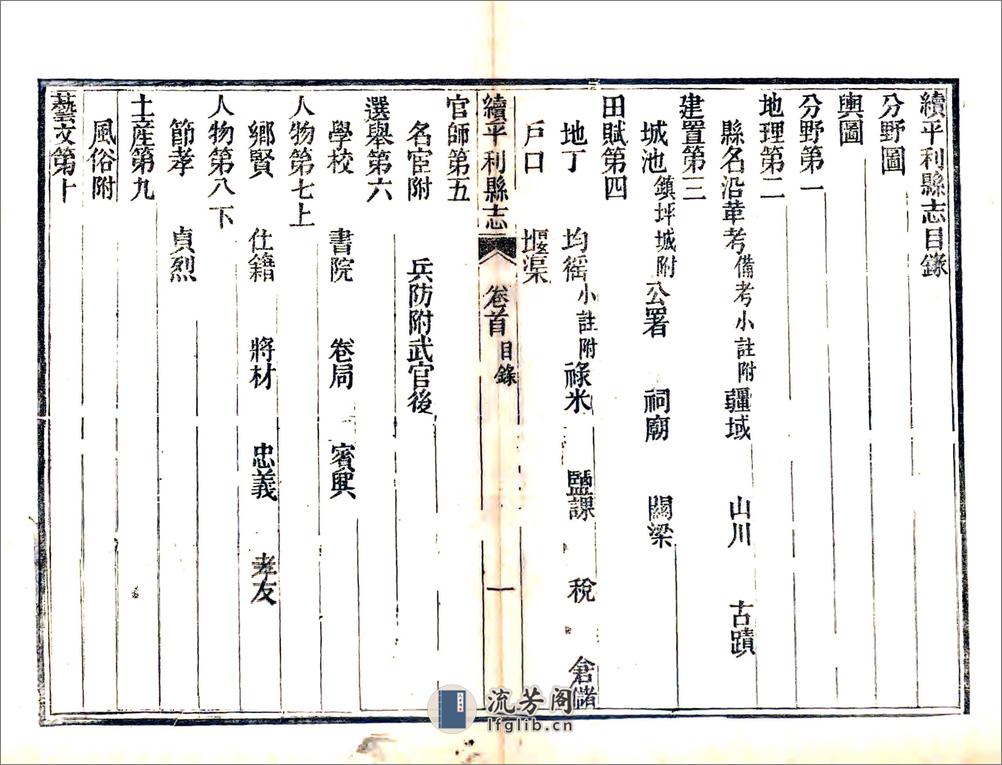 續平利縣志目錄
分野圖
輿圖
分野第一
地理第二
縣名沿革考 備考小註附 疆域 山川 古蹟
建置第三
城池 鎮坪城附 公署 祠廟 關梁
田賦第四
地丁 均徭 小註附 祿米 鹽課 稅 倉儲
戶口 堰渠
續平利縣志 卷首 目錄 一
官師第五
名宦附 兵防附武官後
選舉第六
學校 書院 卷局 賓興
人物第七上
鄉賢 仕籍 將材 忠義 孝友
人物第八下
節孝 貞烈
土產第九
風俗附
藝文第十
流芳阁
lfglib.cn